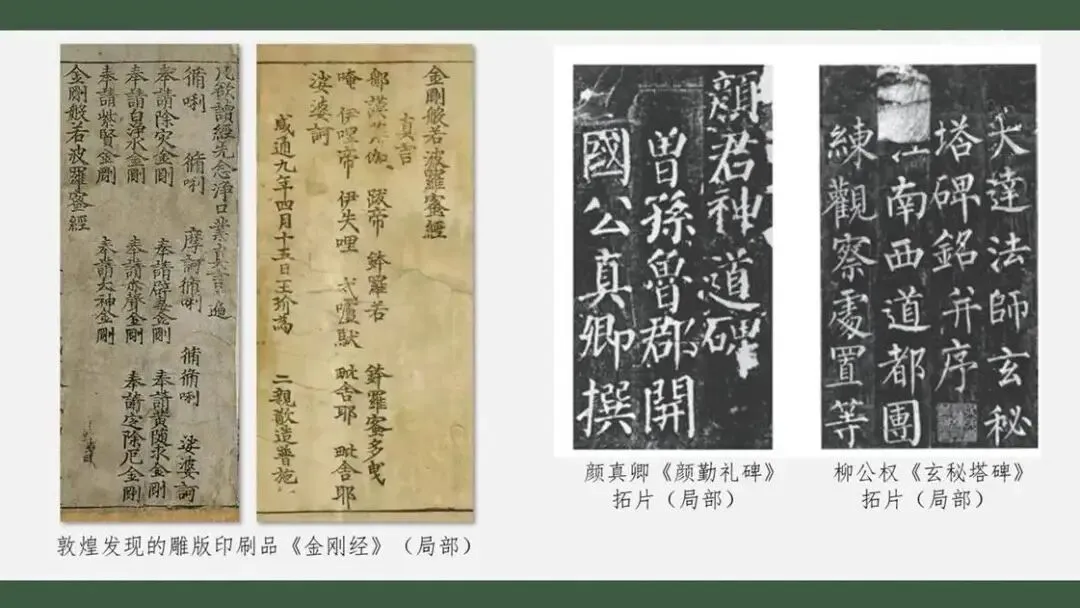 凡欲讀經先念淨口業真言遍
脩唎 脩唎 摩訶脩唎 脩脩唎 娑婆訶
奉請除灾金剛 奉請辟毒金剛 奉請黃隨求金剛
奉請白淨水金剛 奉請赤聲金剛 奉請定除厄金剛
奉請紫賢金剛 奉請大神金剛
金剛般若波羅蜜經
金剛般若波羅蜜經
真言
那謨薄伽 跋帝 鉢羅若 鉢羅蜜多曳
唵 伊哩帝 伊失哩 戍嚧馱 毗舍耶 毗舍耶
娑婆訶
咸通九年四月十五日王玠為 二親敬造普施
敦煌发现的雕版印刷品《金刚经》（局部）
顏君神道碑
曾孫魯郡開
國公真卿撰
颜真卿《颜勤礼碑》
拓片（局部）
大達法師玄秘
塔碑銘并序
南西道都團
練觀察處置等
柳公权《玄秘塔碑》
拓片（局部）